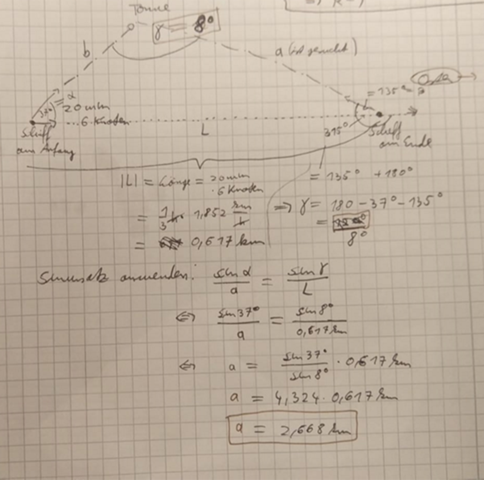 Tonne
γ = 8°
b
a (ist gesucht)
Osten
= 135°
37° = α
20 min
6 Knoten
L
315°
Schiff am Anfang
Schiff am Ende
|L| = Länge = 20 min · 6 Knoten
= 135° + 180°
= 1/3 h · 1,852 km/h
⇒ γ = 180 - 37° - 135°
= 8°
= 0,617 km
Sinussatz anwenden: sin α / a = sin γ / L
⇔ sin 37° / a = sin 8° / 0,617 km
⇔ a = sin 37° / sin 8° · 0,617 km
a = 4,324 · 0,617 km
a = 2,668 km